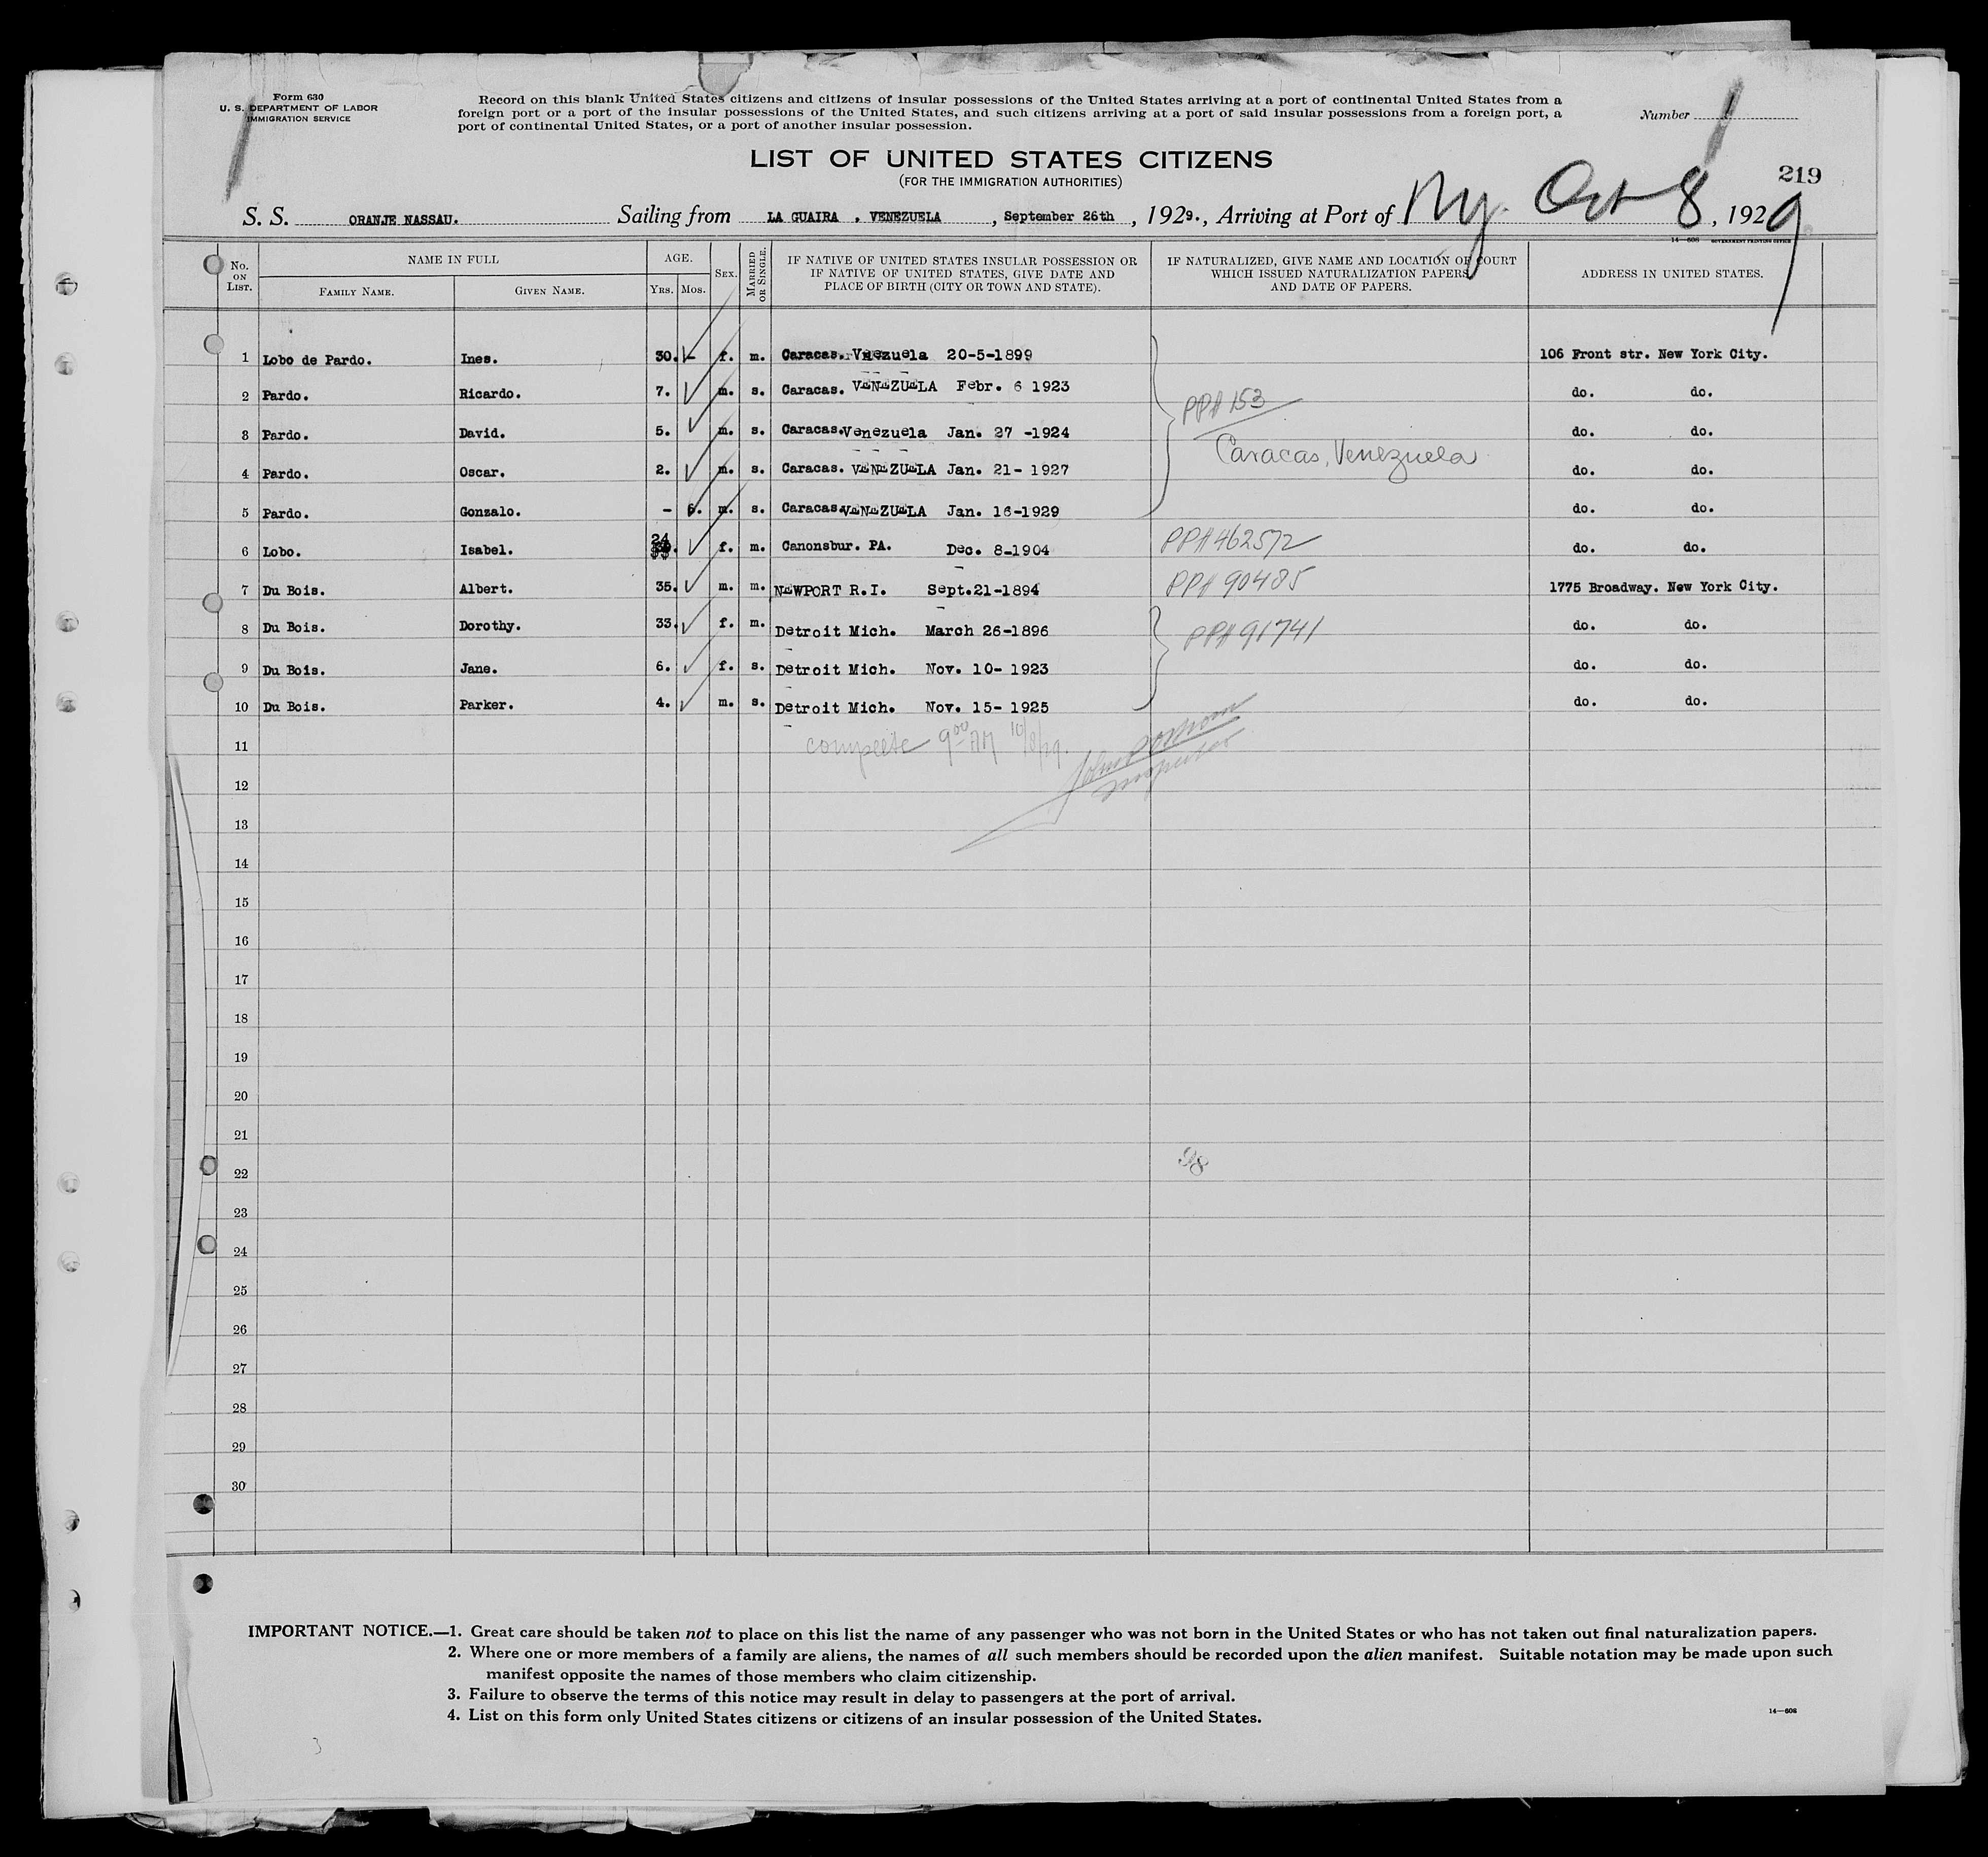 Form 630
U. S. DEPARTMENT OF LABOR
IMMIGRATION SERVICE
Record on this blank United States citizens and citizens of insular possessions of the United States arriving at a port of continental United States from a
foreign port or a port of the insular possessions of the United States, and such citizens arriving at a port of said insular possessions from a foreign port, a
port of continental United States, or a port of another insular possession.
Number 1
LIST OF UNITED STATES CITIZENS
(FOR THE IMMIGRATION AUTHORITIES)
219
S. S. ORANJE NASSAU. Sailing from LA GUAIRA , VENEZUELA , September 26th , 1929., Arriving at Port of Ny. Oct 8 , 1929
14—608 GOVERNMENT PRINTING OFFICE
No. ON LIST. NAME IN FULL AGE. SEX. MARRIED OR SINGLE. IF NATIVE OF UNITED STATES INSULAR POSSESSION OR IF NATIVE OF UNITED STATES, GIVE DATE AND PLACE OF BIRTH (CITY OR TOWN AND STATE). IF NATURALIZED, GIVE NAME AND LOCATION OF COURT WHICH ISSUED NATURALIZATION PAPERS, AND DATE OF PAPERS. ADDRESS IN UNITED STATES.
FAMILY NAME. GIVEN NAME. YRS. MOS.
1 Lobo de Pardo. Ines. 30. - f. m. Caracas. Venezuela 20-5-1899 106 Front str. New York City.
2 Pardo. Ricardo. 7. m. s. Caracas. VENEZUELA Febr. 6 1923 PP# 153 do. do.
3 Pardo. David. 5. m. s. Caracas. Venezuela Jan. 27 -1924 Caracas, Venezuela do. do.
4 Pardo. Oscar. 2. m. s. Caracas. VENEZUELA Jan. 21- 1927 do. do.
5 Pardo. Gonzalo. - m. s. Caracas. VENEZUELA Jan. 16-1929 do. do.
6 Lobo. Isabel. 24 f. m. Canonsbur. PA. Dec. 8-1904 PP# 462572 do. do.
7 Du Bois. Albert. 35. m. m. NEWPORT R.I. Sept.21-1894 PP# 90485 1775 Broadway. New York City.
8 Du Bois. Dorothy. 33. f. m. Detroit Mich. March 26-1896 PP# 91741 do. do.
9 Du Bois. Jane. 6. f. s. Detroit Mich. Nov. 10- 1923 do. do.
10 Du Bois. Parker. 4. m. s. Detroit Mich. Nov. 15- 1925 do. do.
11 complete 9 00 AM 10/8/29.
12 Inspector
13
14
15
16
17
18
19
20
21
22 98
23
24
25
26
27
28
29
30
IMPORTANT NOTICE.—1. Great care should be taken not to place on this list the name of any passenger who was not born in the United States or who has not taken out final naturalization papers.
2. Where one or more members of a family are aliens, the names of all such members should be recorded upon the alien manifest. Suitable notation may be made upon such
manifest opposite the names of those members who claim citizenship.
3. Failure to observe the terms of this notice may result in delay to passengers at the port of arrival.
4. List on this form only United States citizens or citizens of an insular possession of the United States.
14—608
3